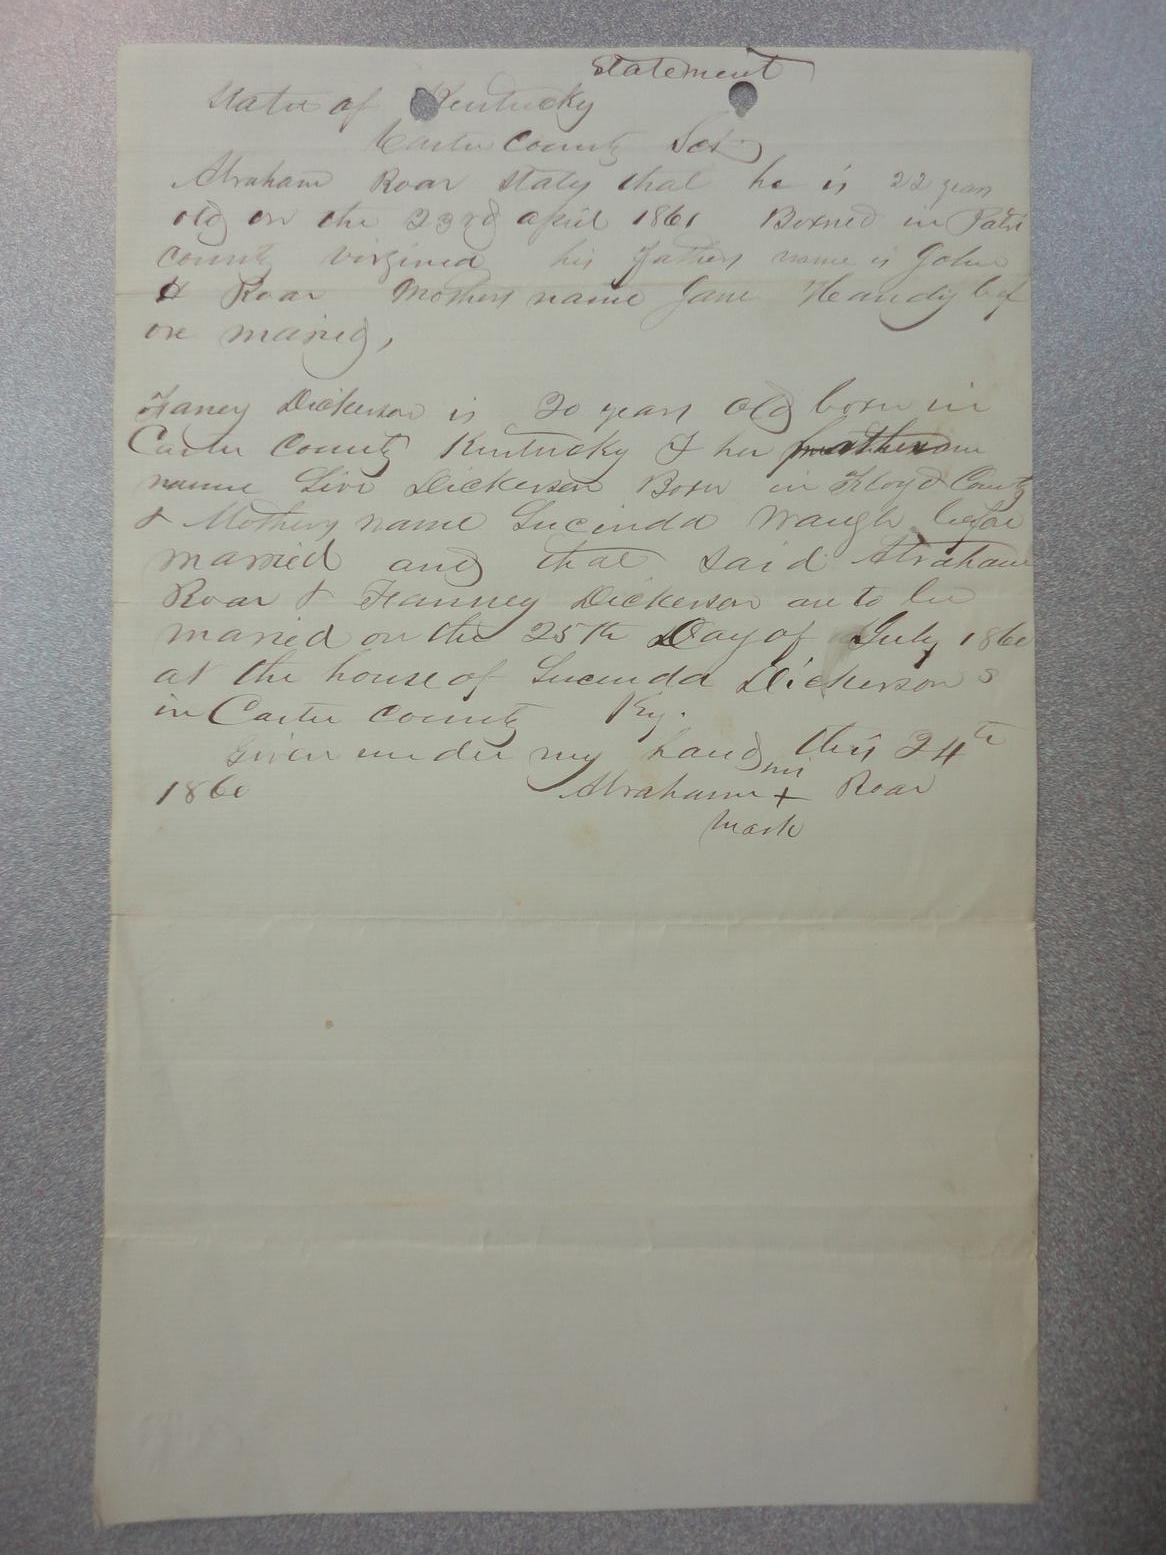 Statement
State of Kentucky
Carter County Sct
Abraham Roar staty that he is 22 years
old on the 23rd april 1861 Borned in Patri
county virginia his fathers name is John
H Roar Mothers name Jane Handy bef
ore maried,
Faney Dickerson is 20 years old born in
Carter County Kentucky & her
name Livi Dickerson Born in Floyd County
& Mothers name Lucinda Waugh before
married and that said Abraham
Roar & Fanney Dickerson are to be
maried on the 25th Day of July 1861
at the house of Lucinda Dickersons
in Carter County Ky.
Given under my hand this 24th
1861 Abraham + Roar
mark